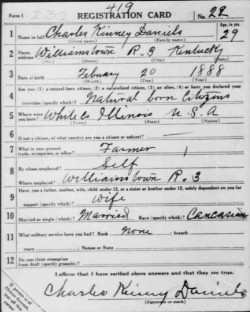 Form 1
419
REGISTRATION CARD
No. 22
1
Name in full Charles Kinney Daniels
Age in yrs. 29
(Given name) (Family name)
2
Williamstown R. 3 Kentucky
3
Date of birth Febuary 20 1888
(Month) (Day) (Year)
4
Are you (1) a natural born citizen, (2) a naturalized citizen, (3) an alien, (4) or have you declared your
intention (specify which)? Natural born Citizen
5
Where were you born? White Co Illinois U. S. A
6
If not a citizen, of what country are you a citizen or subject?
7
What is your present trade, occupation, or office? Farmer
8
By whom employed? Self
Where employed? Williamstown R. 3
9
Have you a father, mother, wife, child under 12, or a sister or brother under 12, solely dependent on you for
support (specify which)? wife
10
Married or single (which)? Married Race (specify which)? Caucasian
11
What military service have you had? Rank None ; branch
years ; Nation or State
12
Do you claim exemption from draft (specify grounds)?
I affirm that I have verified above answers and that they are true.
Charles Kinny Daniels
(Signature or mark)